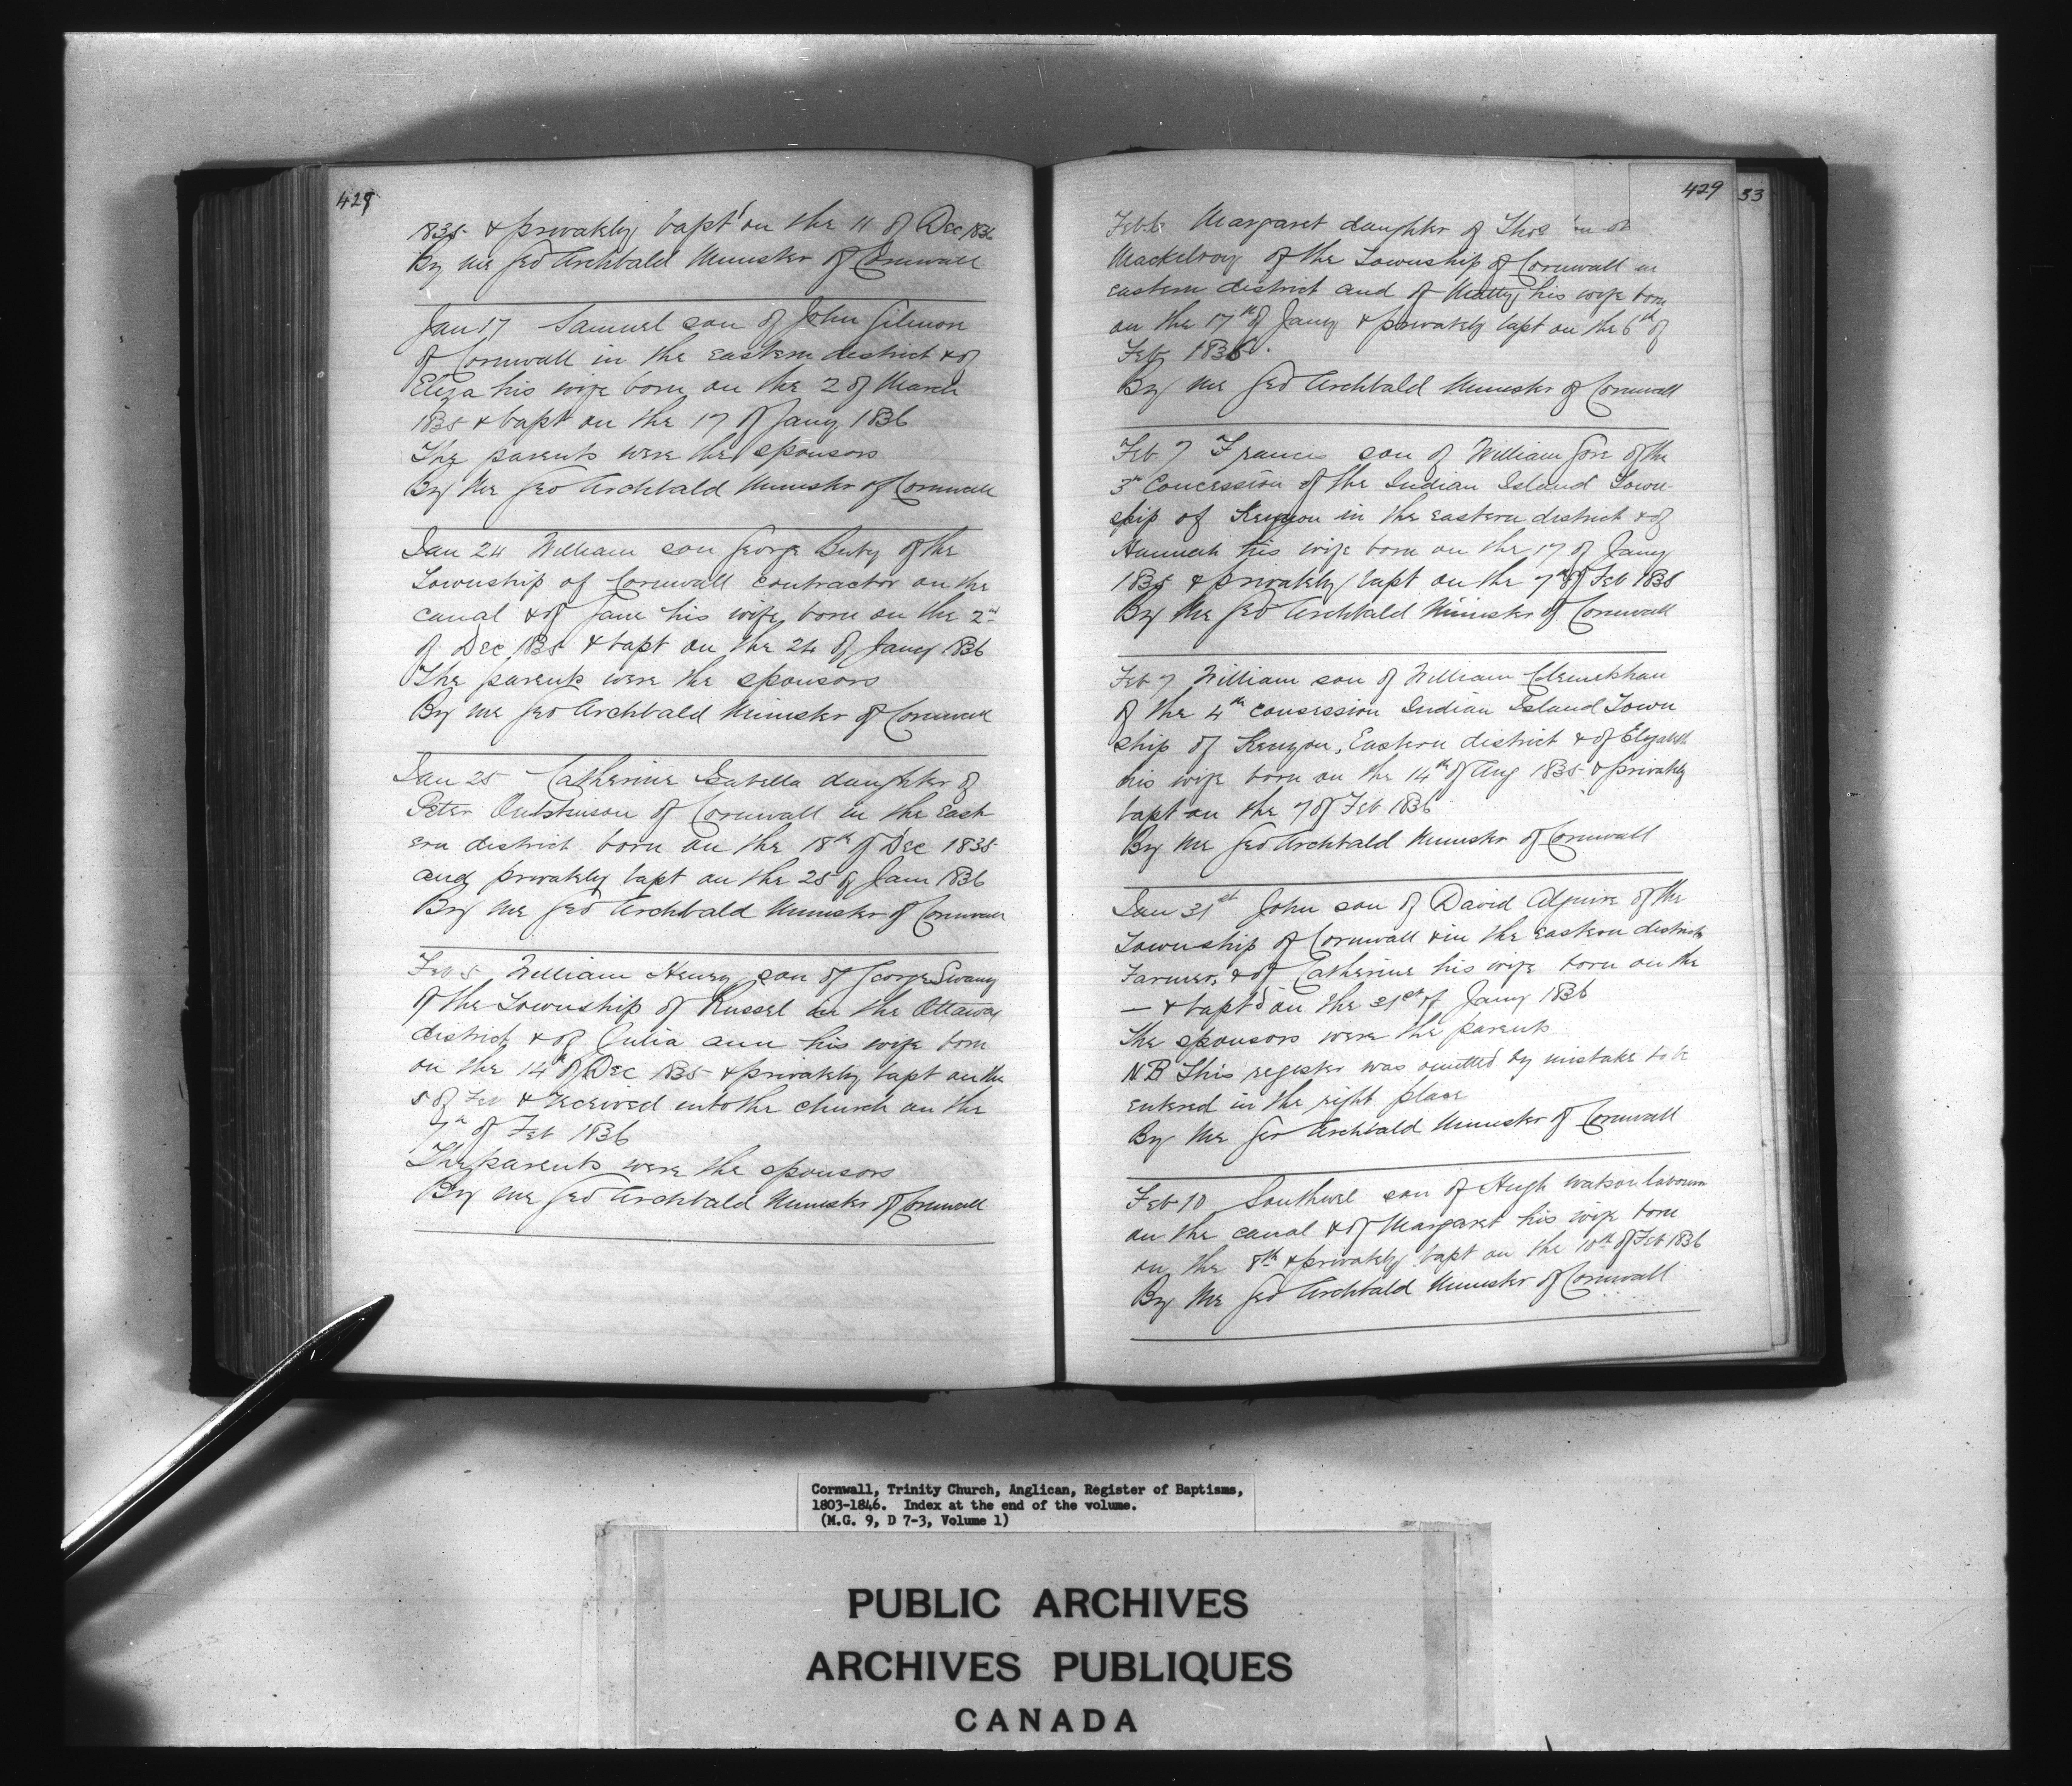 429
1835 & privately bapt'd on the 11 of Dec 1836
By me Geo Archbald Minister of Cornwall
Jan 17 Samuel son of John Gilmor
of Cornwall in the eastern district & of
Eliza his wife born on the 2 of March
1835 & bapt on the 17 of Jany 1836
The parents were the sponsors
By me Geo Archbald Minister of Cornwall
Jan 24 William son George of the
Township of Cornwall contractor on the
canal & of Jane his wife born on the 2nd
of Dec 1835 & bapt on the 24 of Jany 1836
The parents were the sponsors
By me Geo Archbald Minister of Cornwall
Jan 25 Catherine Isabella daughter of
Peter of Cornwall in the East
ern district born on the 18th of Dec 1835
and privately bapt on the 25 of Jan 1836
By me Geo Archbald Minister of Cornwall
Feb 5 William Henry son of George Swany
of the Township of Russel in the Ottawa
district & of Julia ann his wife born
on the 14th of Dec 1835 & privately bapt on the
5 of Feb & received into the church on the
7th of Feb 1836
The parents were the sponsors
By me Geo Archbald Minister of Cornwall
429 53
Feb 6 Margaret daughter of
Mackelroy of the Township of Cornwall in
eastern district and of his wife born
on the 17th of Jany & privately bapt on the 6th of
Feb 1836.
By me Geo Archbald Minister of Cornwall
Feb 7 Francis son of William Gore of the
3rd Concession of the Indian Island Town-
ship of Kenyon in the eastern district & of
Hannah his wife born on the 17 of Jany
1835 & privately bapt on the 7th of Feb 1836
By me Geo Archbald Minister of Cornwall
Feb 7 William son of William
of the 4th consession Indian Island Town
ship of Kenyon, Eastern district & of Elizabeth
his wife born on the 14th of Aug 1835 & privately
bapt on the 7 of Feb 1836
By me Geo Archbald Minister of Cornwall
Jan 31st John son of David Alguire of the
Township of Cornwall & in the eastern district
Farmer, & of Catherine his wife born on the
— & bapt'd on the 31st of Jany 1836
The sponsors were the parents
NB This register was omitted by mistake to be
entered in the right place
By me Geo Archbald Minister of Cornwall
Feb 10 Southwel son of Hugh Watson labourer
on the canal & of Margaret his wife born
on the 8th & privately bapt on the 10th of Feb 1836
By me Geo Archbald Minister of Cornwall
Cornwall, Trinity Church, Anglican, Register of Baptisms,
1803-1846. Index at the end of the volume.
(M.G. 9, D 7-3, Volume 1)
PUBLIC ARCHIVES
ARCHIVES PUBLIQUES
CANADA